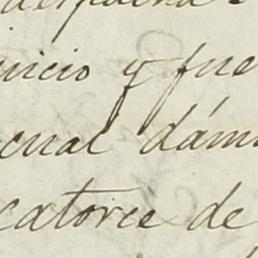 inicio y fue
cual dám
catorce de